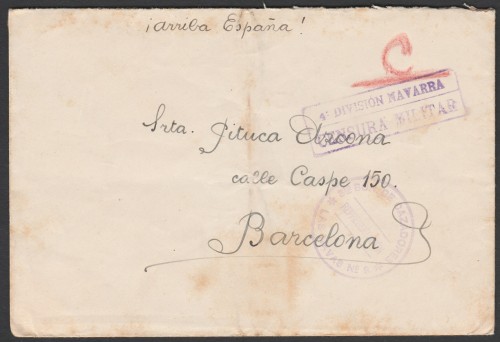 ¡Arriba España!
C
4ª DIVISIÓN NAVARRA
CENSURA MILITAR
Srta. Pituca Arcona
calle Caspe 150.
Barcelona